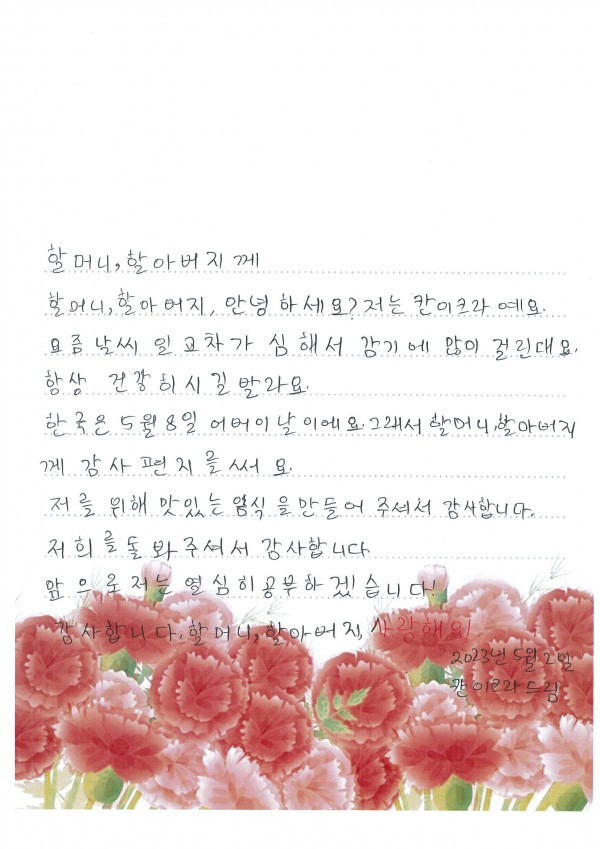 할머니, 할아버지께
할머니, 할아버지, 안녕하세요? 저는 칸이크라예요.
요즘 날씨 일교차가 심해서 감기에 많이 걸린대요.
항상 건강히시길 발라요.
한국은 5월 8일 어버이날이에요. 그래서 할머니, 할아버지
께 감사 편지를 써요.
저를 위해 맛있는 음식을 만들어 주셔서 감사합니다.
저희를 돌봐주셔서 감사합니다
앞으로 저는 열심히 공부하겠습니다!
감사합니다. 할머니, 할아버지, 사랑해요!
2023년 5월 2일
칸이크라드림